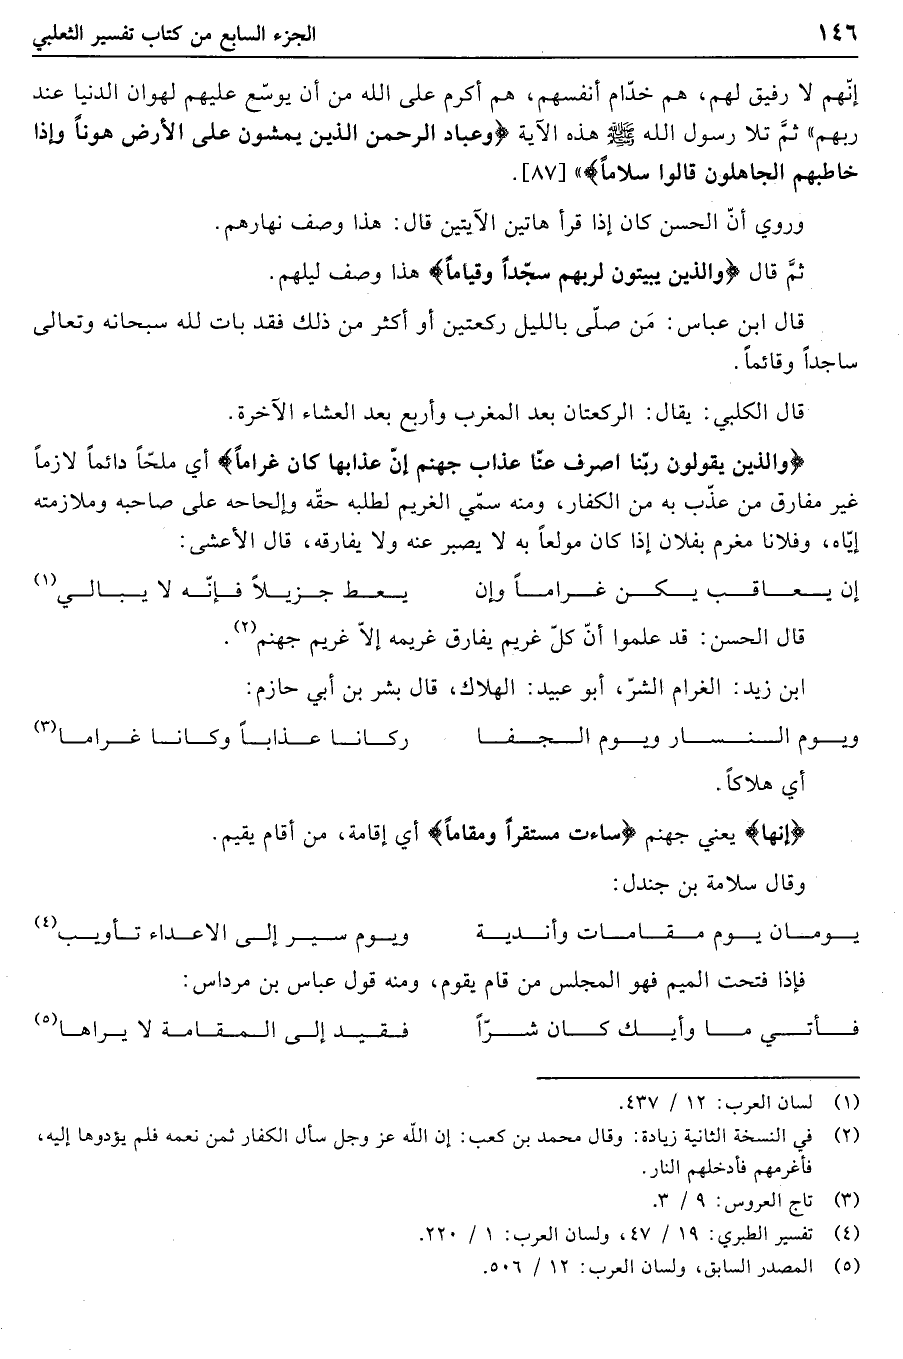 ١٤٦ الجزء السابع من كتاب تفسير الثعلبي
إنّهم لا رفيق لهم، هم خدّام أنفسهم، هم أكرم على الله من أن يوسّع عليهم لهوان الدنيا عند
ربهم» ثمَّ تلا رسول الله ﷺ هذه الآية ﴿وعباد الرحمن الذين يمشون على الأرض هوناً وإذا
خاطبهم الجاهلون قالوا سلاماً﴾» [٨٧].
وروي أنّ الحسن كان إذا قرأ هاتين الآيتين قال: هذا وصف نهارهم.
ثمَّ قال ﴿والذين يبيتون لربهم سجّداً وقياماً﴾ هذا وصف ليلهم.
قال ابن عباس: مَن صلّى بالليل ركعتين أو أكثر من ذلك فقد بات لله سبحانه وتعالى
ساجداً وقائماً.
قال الكلبي: يقال: الركعتان بعد المغرب وأربع بعد العشاء الآخرة.
﴿والذين يقولون ربّنا اصرف عنّا عذاب جهنم إنّ عذابها كان غراماً﴾ أي ملحّاً دائماً لازماً
غير مفارق من عذّب به من الكفار، ومنه سمّي الغريم لطلبه حقّه وإلحاحه على صاحبه وملازمته
إيّاه، وفلانا مغرم بفلان إذا كان مولعاً به لا يصبر عنه ولا يفارقه، قال الأعشى:
إن يعاقب يكن غراماً وإن يعط جزيلاً فإنّه لا يبالي(١)
قال الحسن: قد علموا أنّ كلّ غريم يفارق غريمه إلاّ غريم جهنم(٢).
ابن زيد: الغرام الشرّ، أبو عبيد: الهلاك، قال بشر بن أبي حازم:
ويوم النسار ويوم الجفا ركانا عذاباً وكانا غراما(٣)
أي هلاكاً.
﴿إنها﴾ يعني جهنم ﴿ساءت مستقراً ومقاماً﴾ أي إقامة، من أقام يقيم.
وقال سلامة بن جندل:
يومان يوم مقامات وأندية ويوم سير إلى الاعداء تأويب(٤)
فإذا فتحت الميم فهو المجلس من قام يقوم، ومنه قول عباس بن مرداس:
فأتي ما وأيك كان شرّاً فقيد إلى المقامة لا يراها(٥)
(١) لسان العرب: ١٢ / ٤٣٧.
(٢) في النسخة الثانية زيادة: وقال محمد بن كعب: إن الله عز وجل سأل الكفار ثمن نعمه فلم يؤدوها إليه،
فأغرمهم فأدخلهم النار.
(٣) تاج العروس: ٩ / ٣.
(٤) تفسير الطبري: ١٩ / ٤٧، ولسان العرب: ١ / ٢٢٠.
(٥) المصدر السابق، ولسان العرب: ١٢ / ٥٠٦.